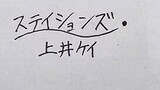 ステイションズ.
上井ケイ